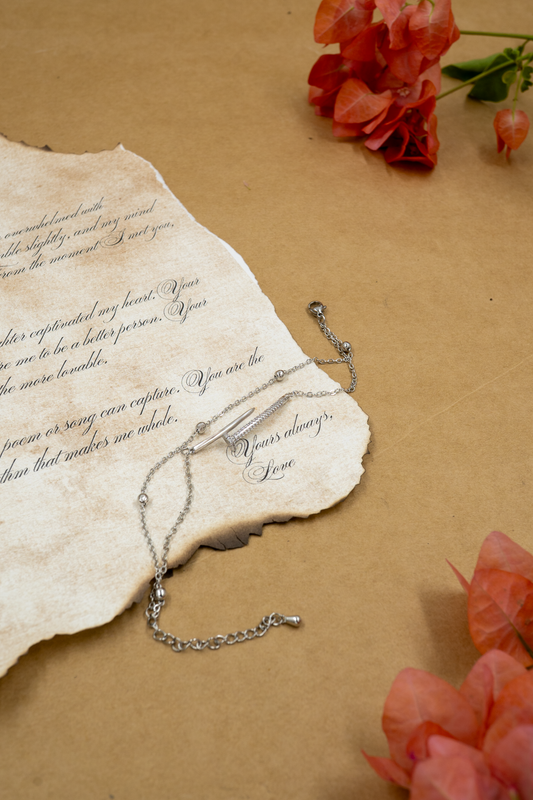 overwhelmed with
slightly, and my mind
from the moment I met you,
captivated my heart. Your
me to be a better person. Your
the more lovable.
poem or song can capture. You are the
that makes me whole.
Yours always,
Love